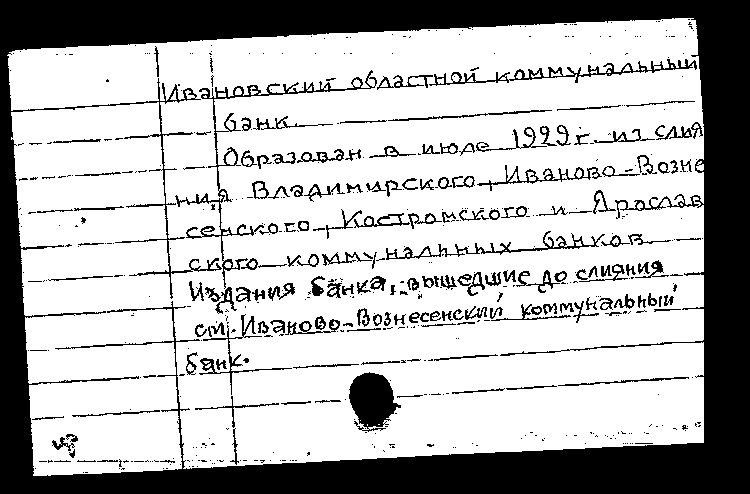 Ивановский областной коммунальный
банк.
Образован в июле 1929 г. из слия
ния Владимирского, Иваново-Возне
сенского, Костромского и Ярослав
ского коммунальных банков.
Издания банка, вышедшие до слияния
см. Иваново-Вознесенский коммунальный
банк.